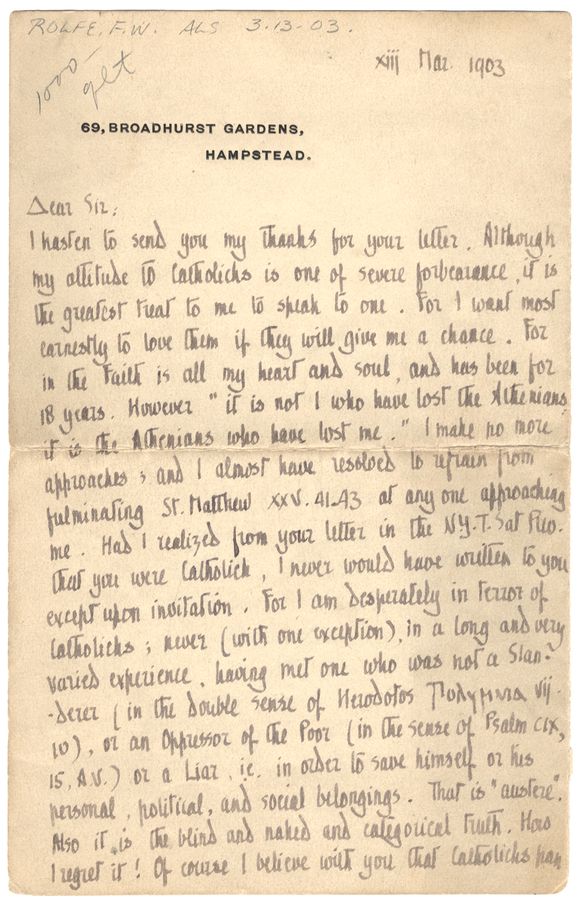 ROLFE, F.W. ALS 3.13-03.
1000-
get
xiij Mar. 1903
69, BROADHURST GARDENS,
HAMPSTEAD.
Dear Sir;
I hasten to send you my thanks for your letter. Although
my attitude to Catholicks is one of severe forbearance, it is
the greatest treat to me to speak to one. For I want most
earnestly to love them if they will give me a chance. For
in the Faith is all my heart and soul, and has been for
18 years. However "it is not I who have lost the Athenians
it is the Athenians who have lost me." I make no more
approaches; and I almost have resolved to refrain from
fulminating St. Matthew XXV. 41.43 at any one approaching
me. Had I realized from your letter in the N.Y.T. Sat Rev.
that you were Catholick, I never would have written to you
except upon invitation. For I am desperately in terror of
Catholicks; never (with one exception), in a long and very
varied experience, having met one who was not a Slan-
-derer (in the double sense of Herodotos Πολυμνια vij.
10), or an Oppressor of the Poor (in the sense of Psalm CIX,
15, A.V.) or a Liar, ie. in order to save himself or his
personal, political, and social belongings. That is "austere".
Also it is the blind and naked and categorical truth. How
I regret it! Of course I believe with you that Catholicks